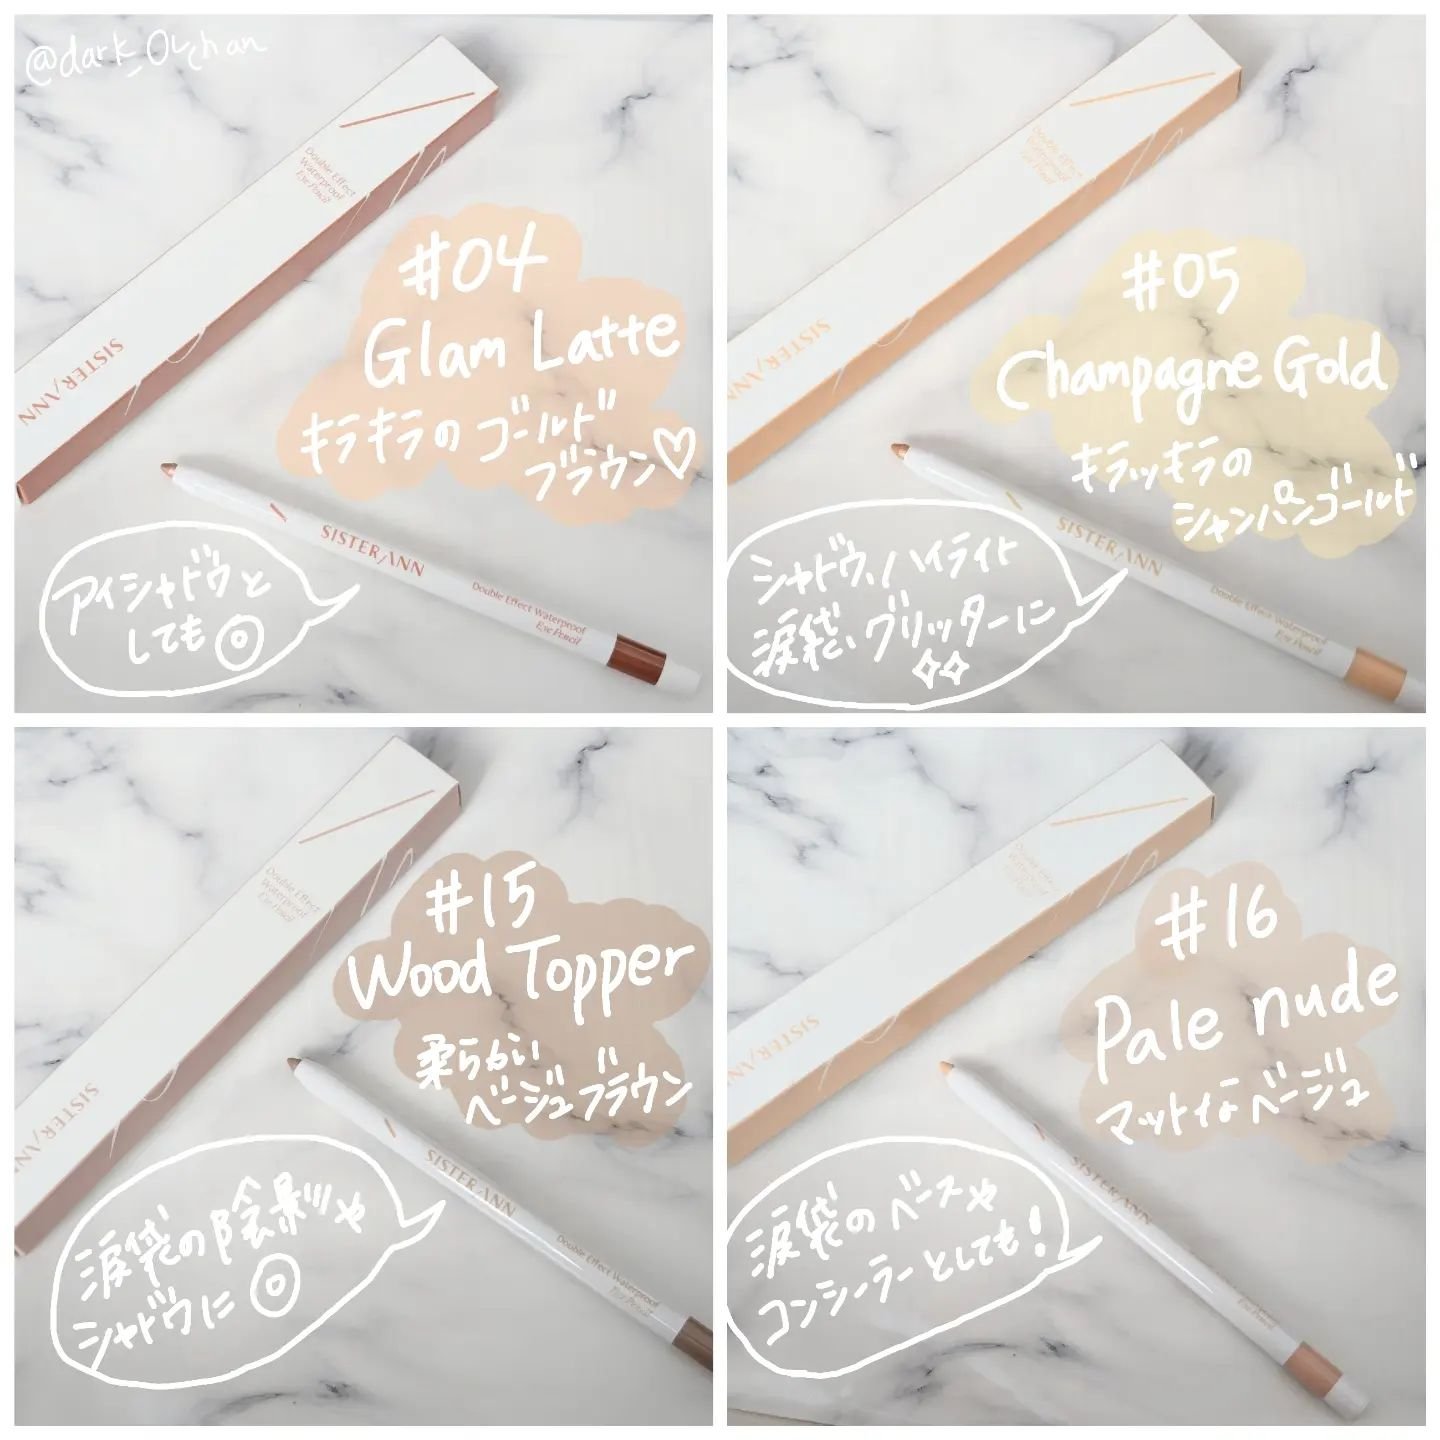 @dark_Olchan
Double Effect
Waterproof
Eye Pencil
SISTER ANN
#04
Glam Latte
キラキラのゴールド
ブラウン♡
SISTER ANN
Double Effect Waterproof
Eye Pencil
アイシャドウと
しても◎
Double Effect
Waterproof
Eye Pencil
SISTER ANN
#05
Champagne Gold
キラッキラの
シャンパンゴールド
SISTER ANN
Double Effect Waterproof
Eye Pencil
シャドウ、ハイライト
涙袋、グリッターに
Double Effect
Waterproof
Eye Pencil
SISTER ANN
#15
Wood Topper
柔らかい
ベージュブラウン
SISTER ANN
Double Effect Waterproof
Eye Pencil
涙袋の陰影や
シャドウに◎
Double Effect
Waterproof
SISTER ANN
#16
Pale nude
マットなベージュ
SISTER ANN
Eye Pencil
涙袋のベースや
コンシーラーとしても!